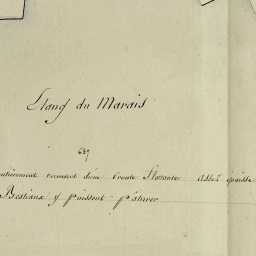 Etang du Marais
627
entièrement recouvert d'une croute flottante assez épaisse
Bestiaux y puissent pâturer